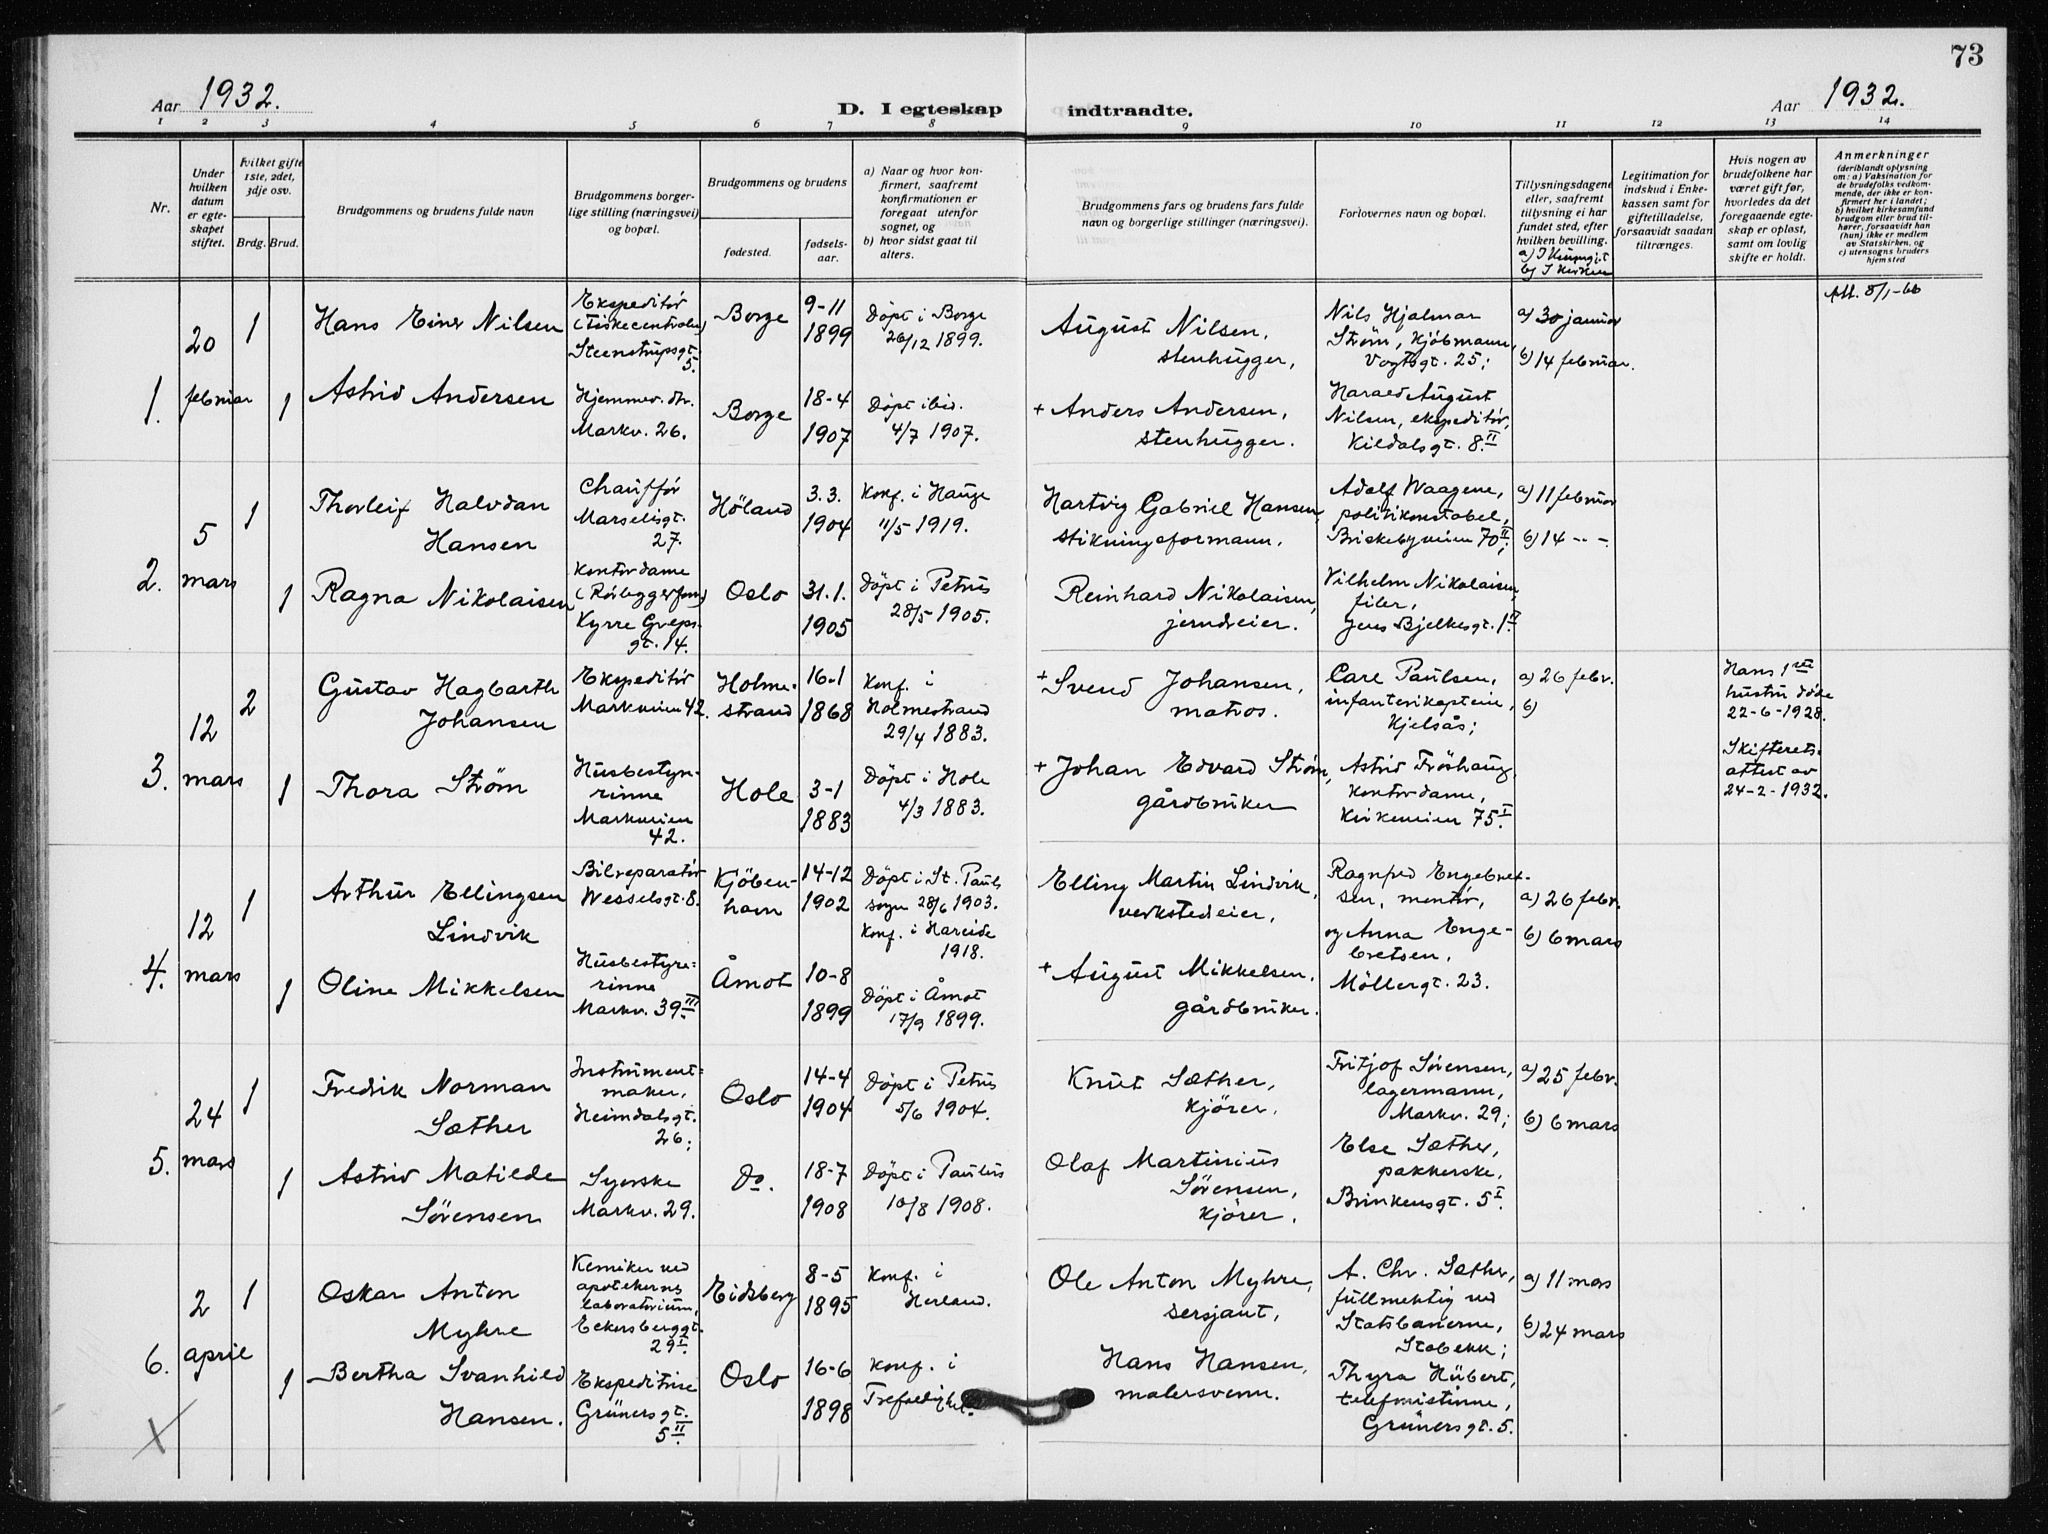 73
Aar 1932.
D. I egteskap indtraadte.
Aar 1932.
1 2 3 4 5 6 7 8 9 10 11 12 13 14
Nr.
Under hvilken datum er egte-skapet stiftet.
Hvilket gifte 1ste, 2det, 3dje osv.
Brdg. Brud.
Brudgommens og brudens fulde navn
Brudgommens borger-lige stilling (næringsvei) og bopæl.
Brudgommens og brudens
fødested.
fødsels-aar.
a) Naar og hvor kon-firmert, saafremt konfirmationen er foregaat utenfor sognet, og
b) hvor sidst gaat til alters.
Brudgommens fars og brudens fars fulde navn og borgerlige stillinger (næringsvei).
Forlovernes navn og bopæl.
Tillysningsdagene eller, saafremt tillysning ei har fundet sted, efter hvilken bevilling.
b) I kirken
Legitimation for indskud i Enke-kassen samt for giftetilladelse, forsaavidt saadan tiltrænges.
Hvis nogen av brudefolkene har været gift før, hvorledes da det foregaaende egte-skap er opløst, samt om lovlig skifte er holdt.
Anmerkninger
(deriblandt oplysning om: a) Vaksination for de brudefolks vedkom-mende, der ikke er kon-firmert her i landet;
b) hvilket kirkesamfund brudgom eller brud til-hører, forsaavidt han (hun) ikke er medlem av Statskirken, og
c) utensogns bruders hjemsted
1.
20
februar
1
Hans Einer Nilsen
Ekspeditör
(Fiskecentralen)
Steenstrupsgt.
5.
Borge
9-11
1899
Döpt i Borge
26/12 1899.
August Nilsen,
stenhugger,
Nils Hjalmar
Ström, kjöbmann,
Vogtsgt. 25;
a) 30 januar
b) 14 februar.
Att. 8/1-66
1
Astrid Andersen
Hjemmev. dtr.
Markv. 26.
Borge
18-4
1907
Döpt ibid.
4/7 1907.
+ Anders Andersen,
stenhugger.
Harald August
Nilsen, ekspeditör,
Kildalsgt. 8 II
2.
5
mars
1
Thorleif Halvdan
Hansen
Chauffør
Marselisgt.
27.
Höland
3.3.
1904
Konf. i Hauge
11/5 1919.
Hartvig Gabriel Hansen,
stikningsformann.
Adolf Waagene,
politikonstabel,
Briskebyveien 70 II;
a) 11 februar
b) 14 -- -.
1
Ragna Nikolaisen
Kontordame
Kyrre Greps-
gt. 14.
Oslo
31.1.
1905
Döpt i Petrus
28/5 1905.
Reinhard Nikolaisen,
jerndreier.
Vilhelm Nikolaisen,
filer,
Jens Bjelkesgt. 1 II
3.
12
mars
2
Gustav Hagbarth
Johansen
Ekspeditør
Markveien 42.
Holme-
strand
16-1
1868
Konf. i
Holmestrand
29/4 1883.
+ Svend Johansen,
matros.
Care Paulsen,
infanterikaptein,
Kjelsås;
a) 26 febr.
b)
Hans 1ste
hustru döde
22-6-1928.
Skifterets-
attest av
24-2-1932.
1
Thora Ström
Husbestyr-
rinne
Markveien
42.
Hole
3-1
1883
Döpt i Hole
4/3 1883.
+ Johan Edvard Ström,
gårdbruker
Astrid Fröshaug,
kontordame,
Kirkeveien 75 I
4.
12
mars
1
Arthur Ellingsen
Lindvik
Bilreparatör
Wesselsgt. 8.
Kjöben-
havn
14-12
1902
Döpt i St. Pauls
sogn 28/6 1903.
Konf. i Hareide
1918.
Elling Martin Lindvik,
verkstedeier,
Ragnfred Engebret-
sen, montör,
og Anna Enge-
bretsen,
Möllergt. 23.
a) 26 febr.
b) 6 mars
1
Oline Mikkelsen
Husbestyre-
rinne
Markv. 39 III
Åmot
10-8
1899
Döpt i Åmot
17/9 1899.
+ August Mikkelsen,
gårdbruker.
5.
24
mars
1
Fredrik Norman
Sæther
Instrument-
maker,
Heimdalsgt.
26;
Oslo
14-4
1904
Döpt i Petrus
5/6 1904.
Knut Sæther,
kjörer.
Fritjof Sörensen,
lagermann,
Markv. 29;
a) 25 febr.
b) 6 mars
1
Astrid Matilde
Sörensen
Syerske
Markv. 29.
Do.
18-7
1908
Döpt i Paulus
10/8 1908.
Olaf Martinius
Sörensen,
kjörer.
Else Sæther,
pakkerske,
Brinkensgt. 5 I
6.
2
april
1
Oskar Anton
Myhre
Kemiker ved
apotekernes
laboratorium,
Eckersberggt.
29 I
Eidsberg
8-5
1895
Konf. i
Herland.
Ole Anton Myhre,
sersjant,
A. Chr. Sæther,
fullmektig ved
Statsbanerne,
Stabekk;
a) 11 mars
b) 24 mars
1
Bertha Svanhild
Hansen.
Ekspeditrise
Grünersgt.
5 II
Oslo
16-6
1898
Konf. i
Trefoldighet.
Hans Hansen,
malersvenn.
Thyra Hübert,
telefonistinne,
Grünersgt. 5.
X